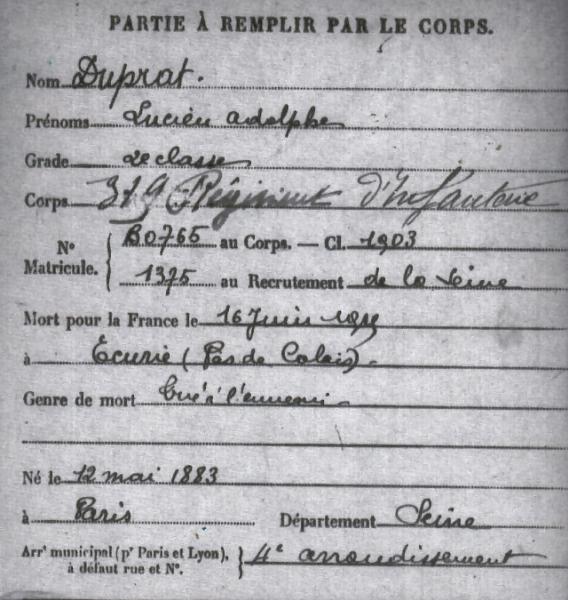 PARTIE À REMPLIR PAR LE CORPS.
Nom Duprat.
Prénoms Lucien Adolphe
Grade 2e classe
Corps 319 Régiment d'Infanterie
N° Matricule. { B0765 au Corps. — Cl. 1903
1375 au Recrutement de la Seine
Mort pour la France le 16 Juin 1915
à Ecurie (Pas de Calais).
Genre de mort Tué à l'ennemi
Né le 12 mai 1883
à Paris Département Seine
Arrt municipal (pr Paris et Lyon), } 4e arrondissement
à défaut rue et N°.